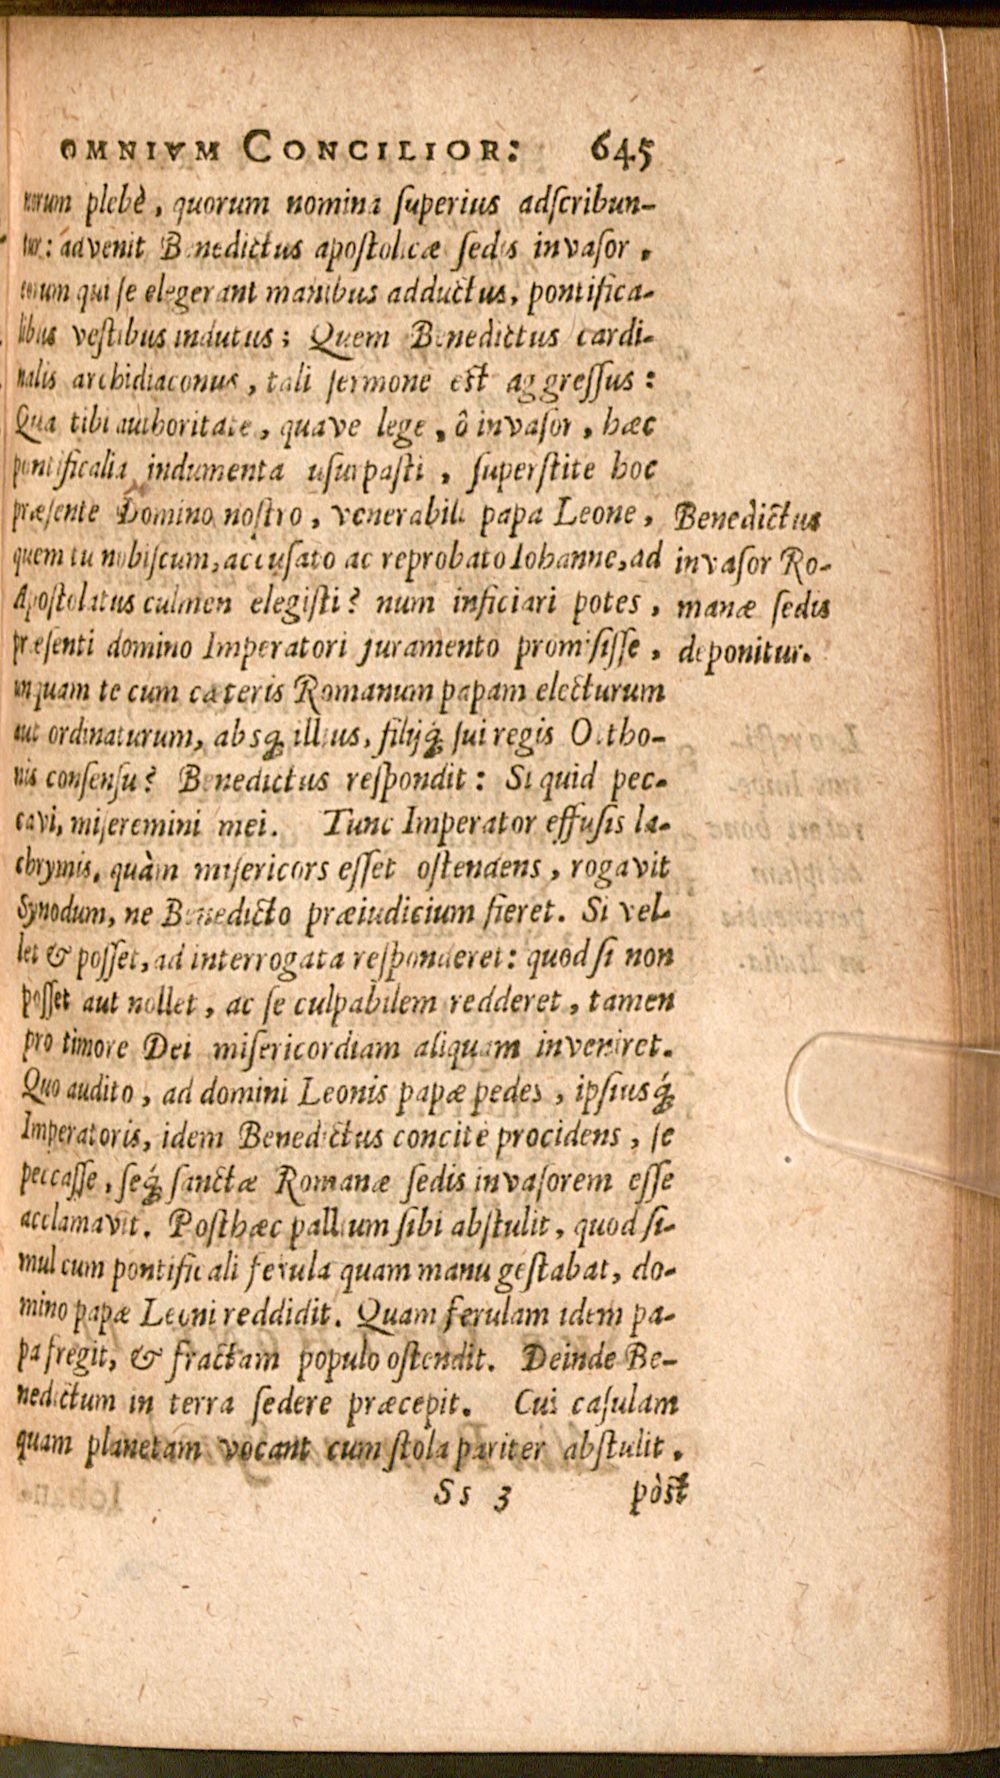 OMNIVM CONCILIOR: 645
norum plebè, quorum nomina superius adscribun-
tur: advenit Benedictus apostolicæ sedis invasor,
eorum qui se elegerant manibus adductus, pontifica-
libus vestibus indutus; Quem Benedictus cardi-
nalis archidiaconus, tali sermone est aggressus:
Qua tibi authoritate, quave lege, ô invasor, hæc
pontificalia indumenta usurpasti, superstite hoc
præsente Domino nostro, venerabili papa Leone,
quem tu nobiscum, accusato ac reprobato Iohanne, ad
Apostolatus culmen elegisti? num inficiari potes,
præsenti domino Imperatori juramento promisisse,
unquam te cum cæteris Romanum papam electurum
aut ordinaturum, absq́; illius, filijq́; sui regis Otho-
nis consensu? Benedictus respondit: Si quid pec-
cavi, miseremini mei. Tunc Imperator effusis la-
chrymis, quàm misericors esset ostendens, rogavit
Synodum, ne Benedicto præiudicium fieret. Si vel-
let & posset, ad interrogata responderet: quod si non
posset aut nollet, ac se culpabilem redderet, tamen
pro timore Dei misericordiam aliquam inveniret.
Quo audito, ad domini Leonis papæ pedes, ipsiusq́;
Imperatoris, idem Benedictus concitè procidens, se
peccasse, seq́; sanctæ Romanæ sedis invasorem esse
acclamavit. Posthæc pallium sibi abstulit, quod si-
mul cum pontificali ferula quam manu gestabat, do-
mino papæ Leoni reddidit. Quam ferulam idem pa-
pa fregit, & fractam populo ostendit. Deinde Be-
nedictum in terra sedere præcepit. Cui casulam
quam planetam vocant cum stola pariter abstulit.
Ss 3 pòst
Benedictus
invasor Ro-
manæ sedis
deponitur.